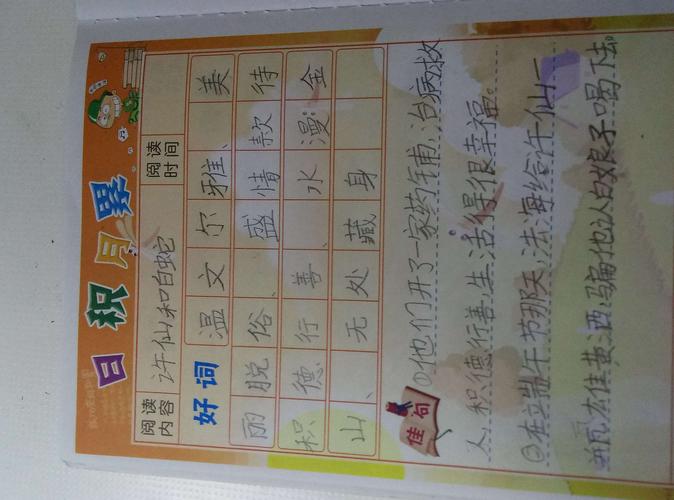 日积月累
阅读内容 许仙和白蛇 阅读时间
好词 温文尔雅、美
丽脱俗、盛情款待
积德行善、水漫金
山、无处藏身
佳句 ①他们开了一家药铺,治病救
人,积德行善,生活得很幸福。
②在端午节那天,法海给许仙一
瓶雄黄酒,骗他让白娘子喝下去。